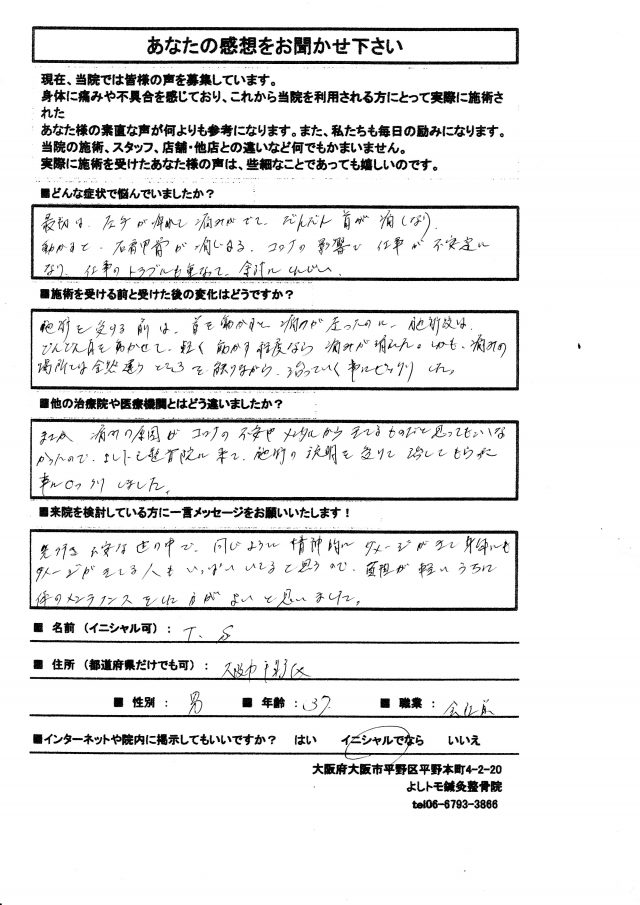 あなたの感想をお聞かせ下さい
現在、当院では皆様の声を募集しています。
身体に痛みや不具合を感じており、これから当院を利用される方にとって実際に施術さ
れた
あなた様の素直な声が何よりも参考になります。また、私たちも毎日の励みになります。
当院の施術、スタッフ、店舗・他店との違いなど何でもかまいません。
実際に施術を受けたあなた様の声は、些細なことであっても嬉しいのです。
■どんな症状で悩んでいましたか？
最初は、左手が痺れて痛みがでて、だんだん首が痛くなり、
動かすと、右肩甲骨が痛
コロナの影響で仕事が不安定に
なり、仕事のトラブルも重なって、余計にしんどい、
■施術を受ける前と受けた後の変化はどうですか？
施術を受ける前は、首を動かすと痛みが走ったのに、施術後は、
どんどん首を動かせて、軽く動かす程度なら痛みが消えた。しかも、痛みの
場所とは全然違うところを触りながら、治っていく事にビックリした。
■他の治療院や医療機関とはどう違いましたか？
まさか痛みの原因がコロナの不安やメンタルからきてるものだと思ってもいな
かったので、よしトモ整骨院に来て、施術の説明を受けて治してもらった
事にビックリしました。
■来院を検討している方に一言メッセージをお願いいたします！
先行き不安な世の中で、同じように精神的にダメージがきて身体にも
ダメージがきてる人もいっぱいいてると思うので、負担が軽いうちに
体のメンテナンスをした方がよいと思いました。
■ 名前（イニシャル可）： T. S
■ 住所（都道府県だけでも可）： 大阪市平野区
■ 性別 ： 男 ■ 年齢 ： 37 ■ 職業 ： 会社員
■インターネットや院内に掲示してもいいですか？ はい イニシャルでなら いいえ
大阪府大阪市平野区平野本町4-2-20
よしトモ鍼灸整骨院
tel06-6793-3866